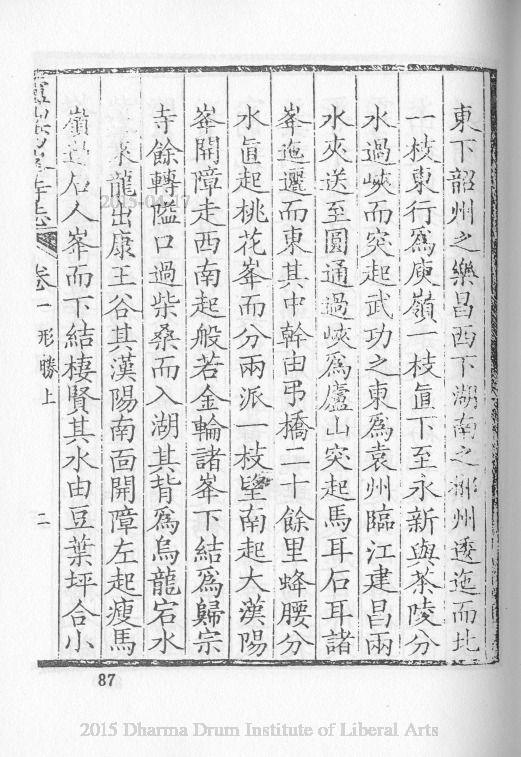 東下韶州之樂昌西下湖南之郴州透迤而北
一枝東行爲庾嶺一枝直下至永新與茶陵分
水過峽而突起武功之東爲袁州臨江建昌兩
水夾送至圓通過峽爲廬山突起馬耳石耳諸
峯迤邐而東其中幹由弔橋二十餘里蜂腰分
水直起桃花峯而分兩派一枝望南起大漢陽
峯開障走西南起般若金輪諸峯下結爲歸宗
寺餘轉隘口過柴桑而入湖其背爲烏龍宕水
來龍出康王谷其漢陽南面開障左起瘦馬
嶺過石人峯而下結棲賢其水由豆葉坪合小
卷一 形勝上 二
87
2015-04-17
2015 Dharma Drum Institute of Liberal Arts